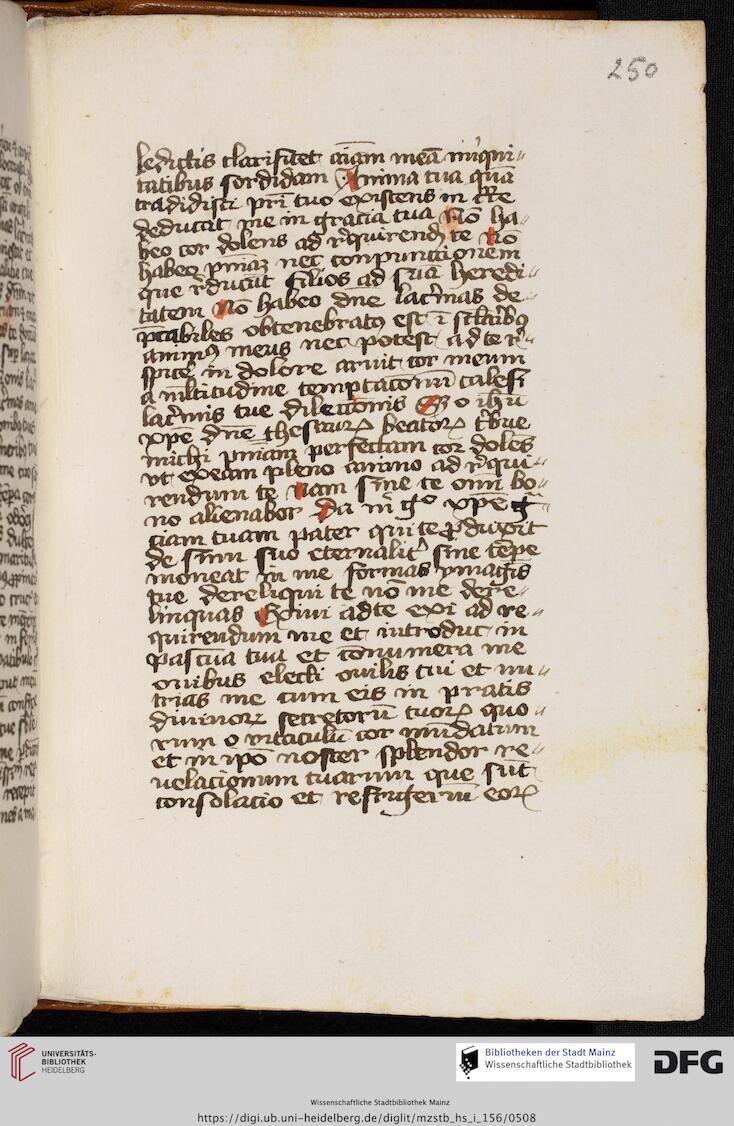 250
ledictis clarificet aiam meā iniqui〃
tatibus sordidam Anima tua quā
tradidisti pri tuo existens in cruce
deducat me in gracia tua Nō ha〃
beo cor dolens ad rquirendū te Nō
habeo pniaʒ nec conpunctionem
que rducūt filios ad suā heredi〃
tatem Nō habeo dne lacrimas de〃
obtenebratꝰ est ī
animꝰ meus nec potest ad te r〃
in dolore aruit cor meum
a mltitudine temptacōnū calefi
lacrimis tue dilectionis o ihū
xpe dne thesaurꝝ beatorꝝ tbue
michi pniam perfectam cor doles
vt exeam pleno animo ad rqui〃
rendum te Nam sine te omi bo〃
no alienabor Da m go xpe gr̄
ciam tuam pater qui te ꝓduxit
de sinu suo eternalit sine tēpe
moneat in me formas ymagis
tue dereliqui te nō me dere〃
linquas Exiui adte exi ad re〃
quirendum me et introduc in
pascua tua et cōnumera me
ouibus electi ouilis tui et nu〃
trias me cum eis in pratis
diuinorꝝ secretorū tuorꝝ quo〃
rum o cor mūdatum
et in ipō noster splendor re〃
uelacionum tuarum que sūt
consolacio et refrigeriū eorꝝ
UNIVERSITÄTS-
BIBLIOTHEK
HEIDELBERG
Bibliotheken der Stadt Mainz
Wissenschaftliche Stadtbibliothek
DFG
Wissenschaftliche Stadtbibliothek Mainz
https://digi.ub.uni-heidelberg.de/diglit/mzstb_hs_i_156/0508